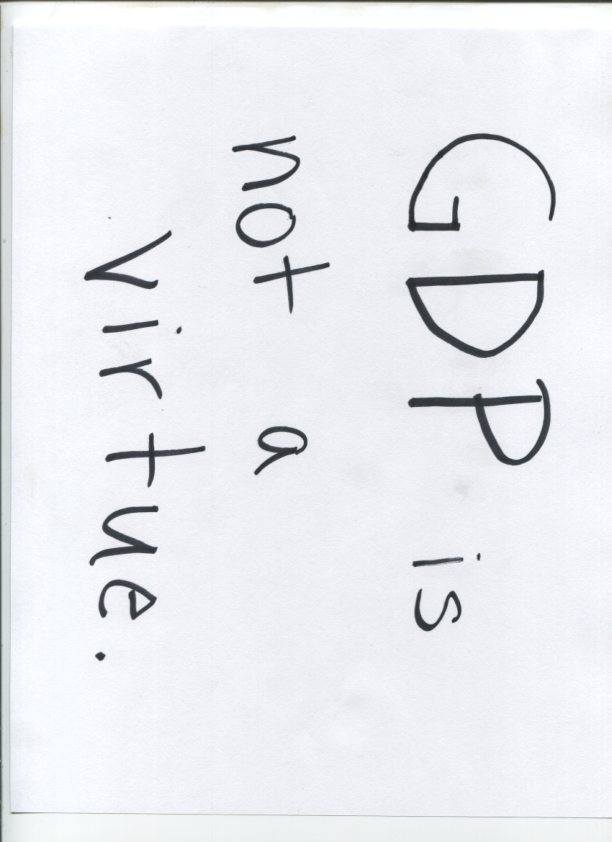 GDP is
not a
virtue.